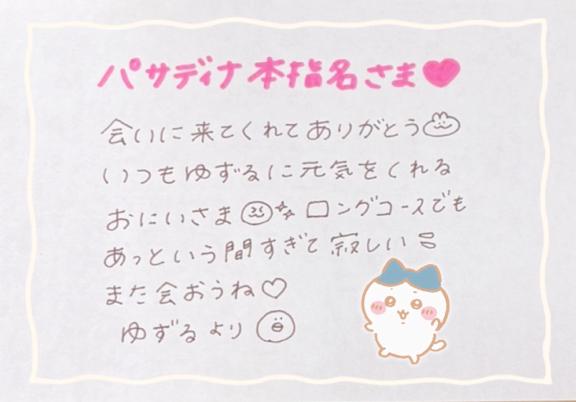 パサディナ本指名さま♥
会いに来てくれてありがとう
いつもゆずるに元気をくれる
おにいさま ロングコースでも
あっという間すぎて寂しい
また会おうね♡
ゆずるより